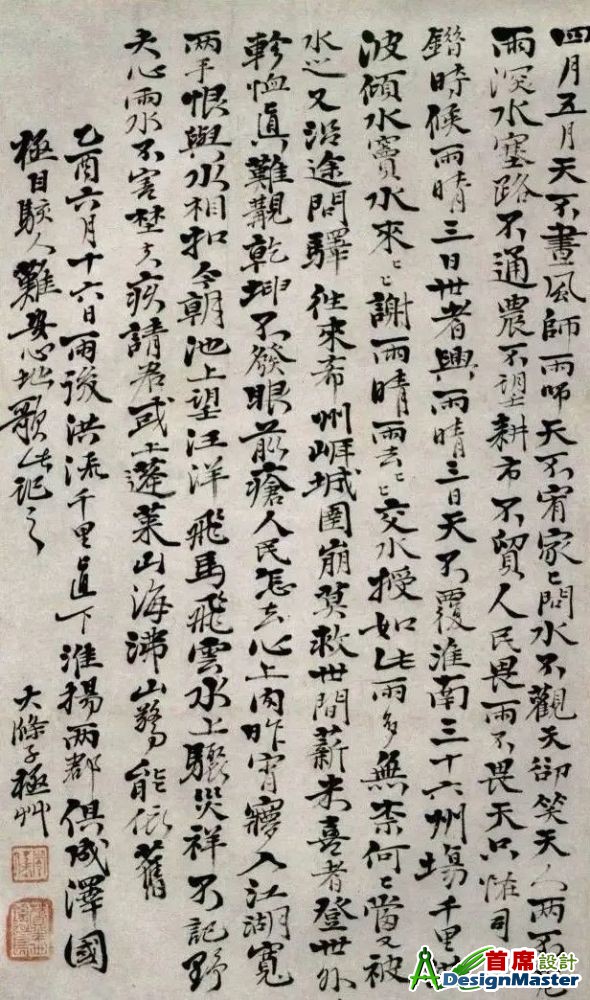 四月五月天不晝風師雨師天不宥家々問水不觀天卻笑天人兩不
雨深水塞路不通農不望耕市不貿人民畏雨不畏天只恠司
時候雨晴三日世者興雨晴三日天不覆淮南三十六州塲千里
波傾水竇水來々謝雨晴雨去々交水授如此雨多無柰何々當又被
水又沿途問驛往來希州崕城圍崩莫救世間薪米喜者登世外
軫恤真難觀乾坤不發眼前瘡人民怎去心上肉昨宵夢入江湖寬
兩手恨與水相扣今朝池上望汪洋飛馬飛雲水上驟災祥不記野
夫心雨水不害埜夫疾請君或上蓬萊山海沸山驚能依舊
乙酉六月十六日雨後洪流千里直下淮揚兩郡俱成澤國
極目駭人難安心地歌此記之
大滌子極艸
首席設計
ADesignMaster